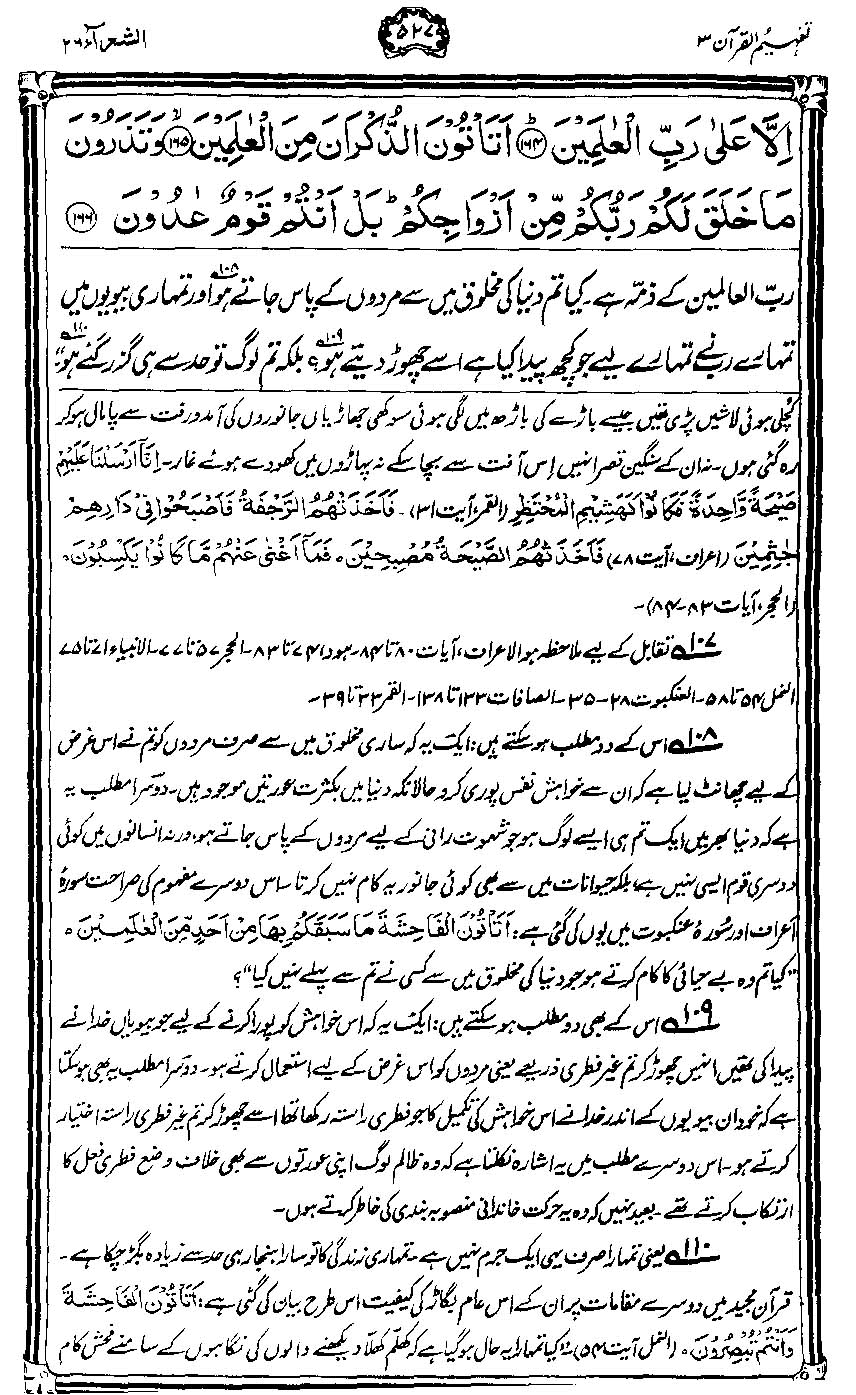 تفہیم القرآن ۳
۵۲۷
الشعرآء ۲۶
اِلَّا عَلٰی رَبِّ الْعٰلَمِیْنَ ؕ۱۶۴ اَتَاْتُوْنَ الذُّکْرَانَ مِنَ الْعٰلَمِیْنَ ۙ۱۶۵ وَتَذَرُوْنَ
مَا خَلَقَ لَکُمْ رَبُّکُمْ مِّنْ اَزْوَاجِکُمْ ؕ بَلْ اَنْتُمْ قَوْمٌ عٰدُوْنَ ۱۶۶
ربّ العالمین کے ذمّہ ہے۔ کیا تم دنیا کی مخلوق میں سے مردوں کے پاس جاتے ہو۱۰۸ اور تمہاری بیویوں میں
تمہارے رب نے تمہارے لیے جو کچھ پیدا کیا ہے اسے چھوڑ دیتے ہو۱۰۹؟ بلکہ تم لوگ تو حد سے ہی گزر گئے ہو۱۱۰"
کچلی ہوئی لاشیں پڑی تھیں جیسے باڑے کی باڑھ میں لگی ہوئی سوکھی جھاڑیاں جانوروں کی آمدورفت سے پامال ہو کر
رہ گئی ہوں۔ نہ ان کے سنگین قصر انہیں اِس آفت سے بچا سکے نہ پہاڑوں میں کھودے ہوئے غار۔ اِنَّآ اَرْسَلْنَا عَلَیْھِمْ
صَیْحَۃً وَّاحِدَۃً فَکَانُوْا کَھَشِیْمِ الْمُحْتَظِرِ (القمر، آیت ۳۱)۔ فَاَخَذَتْھُمُ الرَّجْفَۃُ فَاَصْبَحُوْا فِیْ دَارِھِمْ
جٰثِمِیْنَ (اعراف، آیت ۷۸) فَاَخَذَتْھُمُ الصَّیْحَۃُ مُصْبِحِیْنَ ۰ فَمَآ اَغْنٰی عَنْھُمْ مَّا کَانُوْا یَکْسِبُوْنَ ۰
(الحجر، آیات ۸۳-۸۴)۔
۱۰۷ تقابل کے لیے ملاحظہ ہو الاعراف، آیات ۸۰ تا ۸۴۔ ہود ۷۴ تا ۸۳۔ الحجر ۵۷ تا ۷۷۔ الانبیاء ۷۱ تا ۷۵
النمل ۵۴ تا ۵۸۔ العنکبوت ۲۸-۳۵۔ الصافات ۱۳۳ تا ۱۳۸۔ القمر ۳۳ تا ۳۹۔
۱۰۸ اس کے دو مطلب ہو سکتے ہیں: ایک یہ کہ ساری مخلوق میں سے صرف مردوں کو تم نے اس غرض
کے لیے چھانٹ لیا ہے کہ ان سے خواہش نفس پوری کرو حالانکہ دنیا میں بکثرت عورتیں موجود ہیں۔ دوسرا مطلب یہ
ہے کہ دنیا بھر میں ایک تم ہی ایسے لوگ ہو جو شہوت رانی کے لیے مردوں کے پاس جاتے ہو، ورنہ انسانوں میں کوئی
دوسری قوم ایسی نہیں ہے، بلکہ حیوانات میں سے بھی کوئی جانور یہ کام نہیں کرتا۔ اس دوسرے مفہوم کی صراحت سورۂ
اعراف اور سورۂ عنکبوت میں یوں کی گئی ہے: اَتَاْتُوْنَ الْفَاحِشَۃَ مَا سَبَقَکُمْ بِھَا مِنْ اَحَدٍ مِّنَ الْعٰلَمِیْنَ ۰
"کیا تم وہ بے حیائی کا کام کرتے ہو جو دنیا کی مخلوق میں سے کسی نے تم سے پہلے نہیں کیا"؟
۱۰۹ اس کے بھی دو مطلب ہو سکتے ہیں: ایک یہ کہ اس خواہش کو پورا کرنے کے لیے جو بیویاں خدا نے
پیدا کی تھیں انہیں چھوڑ کر تم غیر فطری ذریعے یعنی مردوں کو اس غرض کے لیے استعمال کرتے ہو۔ دوسرا مطلب یہ بھی ہو سکتا
ہے کہ خود ان بیویوں کے اندر خدا نے اس خواہش کی تکمیل کا جو فطری راستہ رکھا تھا اسے چھوڑ کر تم غیر فطری راستہ اختیار
کرتے ہو۔ اس دوسرے مطلب میں یہ اشارہ نکلتا ہے کہ وہ ظالم لوگ اپنی عورتوں سے بھی خلاف وضع فطری فعل کا
ارتکاب کرتے تھے۔ بعید نہیں کہ وہ یہ حرکت خاندانی منصوبہ بندی کی خاطر کرتے ہوں۔
۱۱۰ یعنی تمہارا صرف یہی ایک جرم نہیں ہے۔ تمہاری زندگی کا تو سارا ہنجار ہی حد سے زیادہ بگڑ چکا ہے۔
قرآن مجید میں دوسرے مقامات پر ان کے اس عام بگاڑ کی کیفیت اس طرح بیان کی گئی ہے: اَتَاْتُوْنَ الْفَاحِشَۃَ
وَاَنْتُمْ تُبْصِرُوْنَ ۰ (النمل آیت ۵۴)، "کیا تمہارا یہ حال ہو گیا ہے کہ کھلم کھلا دیکھنے والوں کی نگاہوں کے سامنے فحش کام